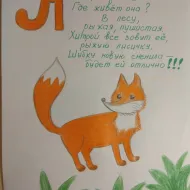 Л
Где живёт она?
В лесу,
рыжая, пушистая.
Хитрой все зовут её,
рыжую лисичку.
Шубку новую сменила –
будет ей отлично!!!